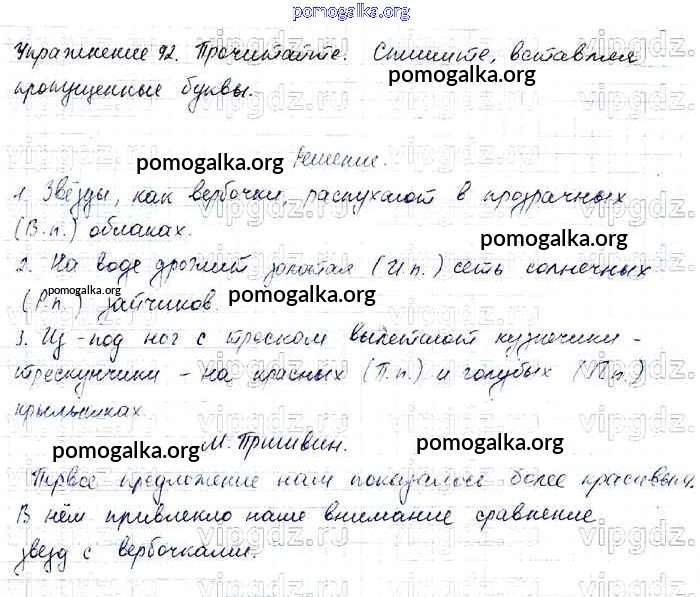 pomogalka.org
Упражнение 92. Прочитайте. Спишите, вставляя
pomogalka.org
пропущенные буквы.
pomogalka.org
Решение.
1. Звёзды, как вербочки, распухают в прозрачных
(В.п.) облаках.
pomogalka.org
2. На воде дрожит золотая (И п.) сеть солнечных
(Р.п.) зайчиков.
pomogalka.org
3. Из-под ног с треском вылетают кузнечики -
трескунчики - на красных (П.п.) и голубых (П п.)
крыльшках.
М. Пришвин.
pomogalka.org pomogalka.org
Первое предложение нам показалось более красивым.
В нём привлекло наше внимание сравнение
звезд с вербочками.
pomogalka.org